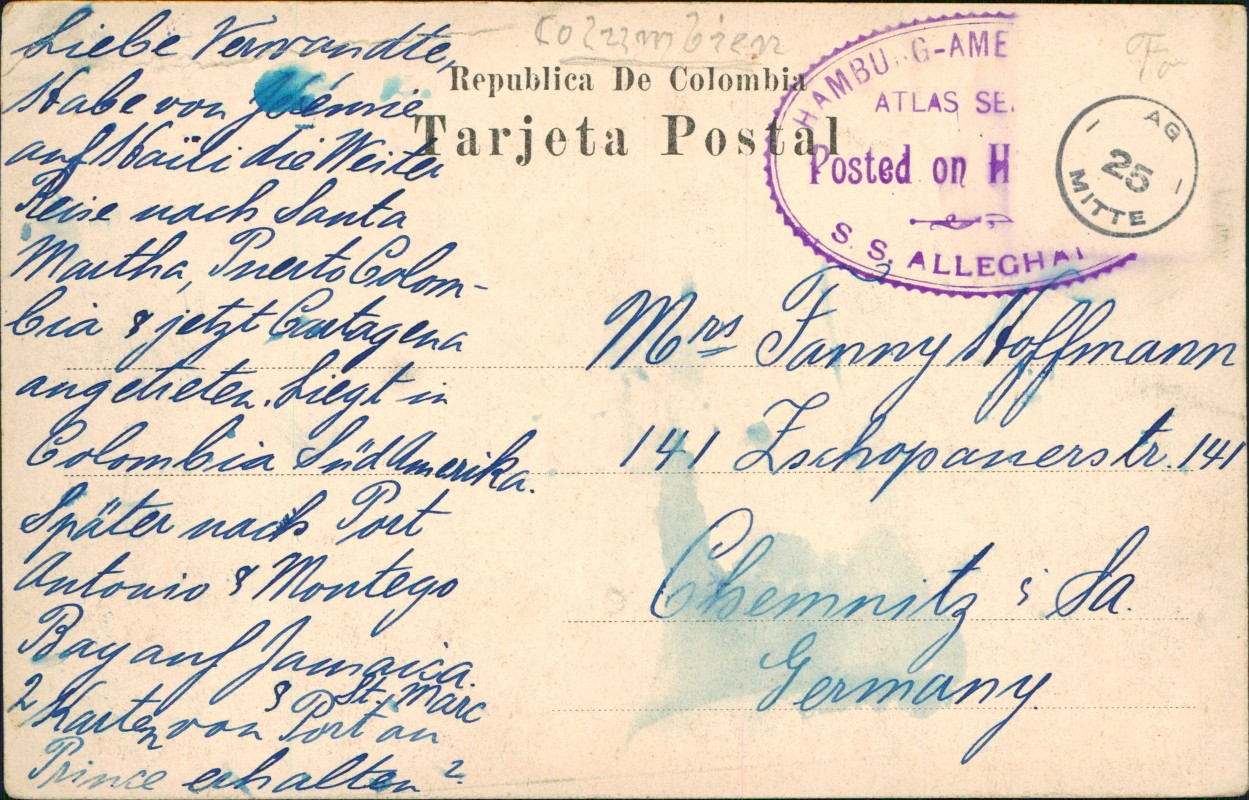 Columbien
Republica De Colombia
Tarjeta Postal
HAMBURG-AME
ATLAS SE
Posted on H
S. S. ALLEGHA
AG
25
MITTE
Liebe Verwandte,
Habe von
auf Haïti die Weiter
Reise nach Santa
Martha, Puerto Colom-
bia & jetzt Cartagena
angetreten. Liegt in
Colombia SüdAmerika.
Später nach Port
Antonio & Montego
Bay auf Jamaica.
& St. Marc
2 Karten von Port au
Prince erhalten?
Mrs Fanny Hoffmann
141 Zschopauerstr. 141
Chemnitz i Sa.
Germany